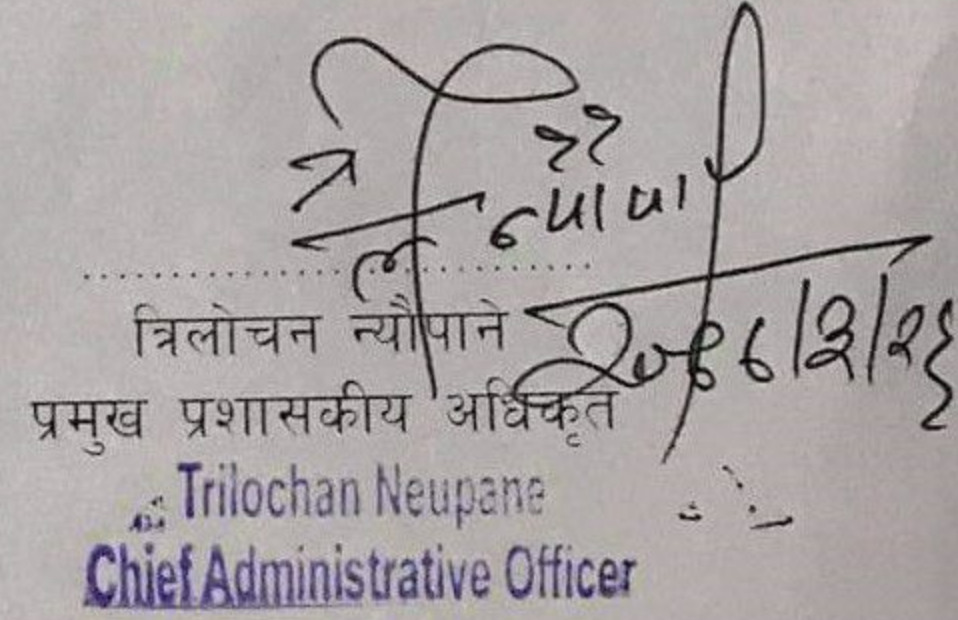 त्रिलोचन न्यौपाने
प्रमुख प्रशासकीय अधिकृत
Trilochan Neupane
Chief Administrative Officer